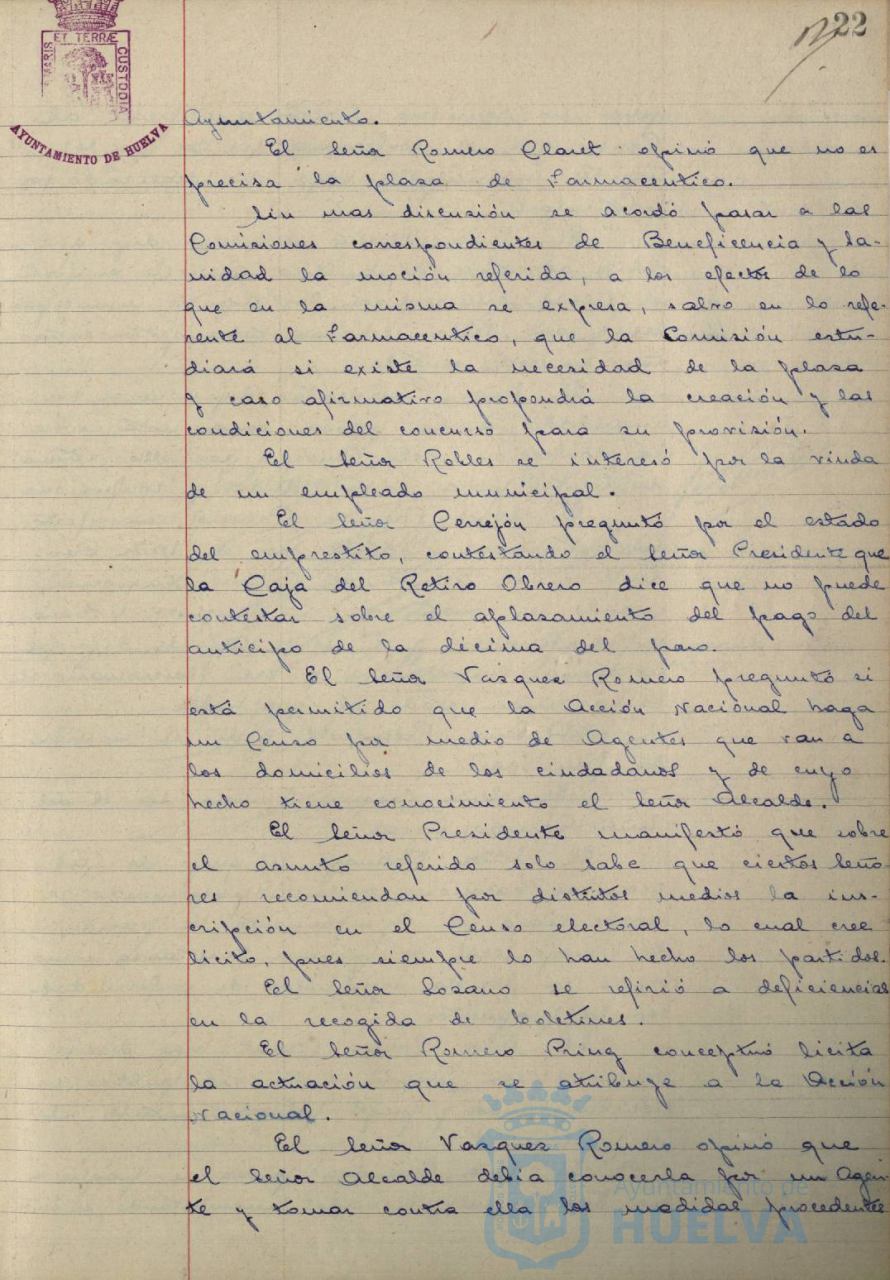 22
ET TERRÆ
MARIS
CUSTODIA
AYUNTAMIENTO DE HUELVA
Ayuntamiento.
El Señor Romero Claret opinó que no es
precisa la plaza de Farmaceutico.
Sin mas discusión se acordó pasar a las
Comisiones correspondientes de Beneficencia y Sa-
nidad la moción referida, a los efectos de lo
que en la misma se expresa, salvo en lo refe-
rente al Farmaceutico, que la Comisión estu-
diará si existe la necesidad de la plaza
y caso afirmativo propondrá la creación y las
condiciones del concurso para su provisión.
El Señor Robles se interesó por la viuda
de un empleado municipal.
El Señor Cerrejón preguntó por el estado
del emprestito, contestando el Señor Presidente que
la Caja del Retiro Obrero dice que no puede
contestar sobre el aplasamiento del pago del
anticipo de la décima del paro.
El Señor Vasquez Romero preguntó si
está permitido que la Acción Nacional haga
un Censo por medio de Agentes que van a
los domicilios de los ciudadanos y de cuyo
hecho tiene conocimiento el Señor Alcalde.
El Señor Presidente manifestó que sobre
el asunto referido solo sabe que ciertos Seño-
res recomiendan por distintos medios la ins-
cripción en el Censo electoral, lo cual cree
licito, pues siempre lo han hecho los partidos.
El Señor Lozano se refirió a deficiencias
en la recogida de boletines.
El Señor Romero Pring conceptuó licita
la actuación que se atribuye a la Acción
Nacional.
El Señor Vasquez Romero opinó que
el Señor Alcalde debia conocerla por un Agen-
te y tomar contra ella las medidas procedentes
Ayuntamiento de
HUELVA